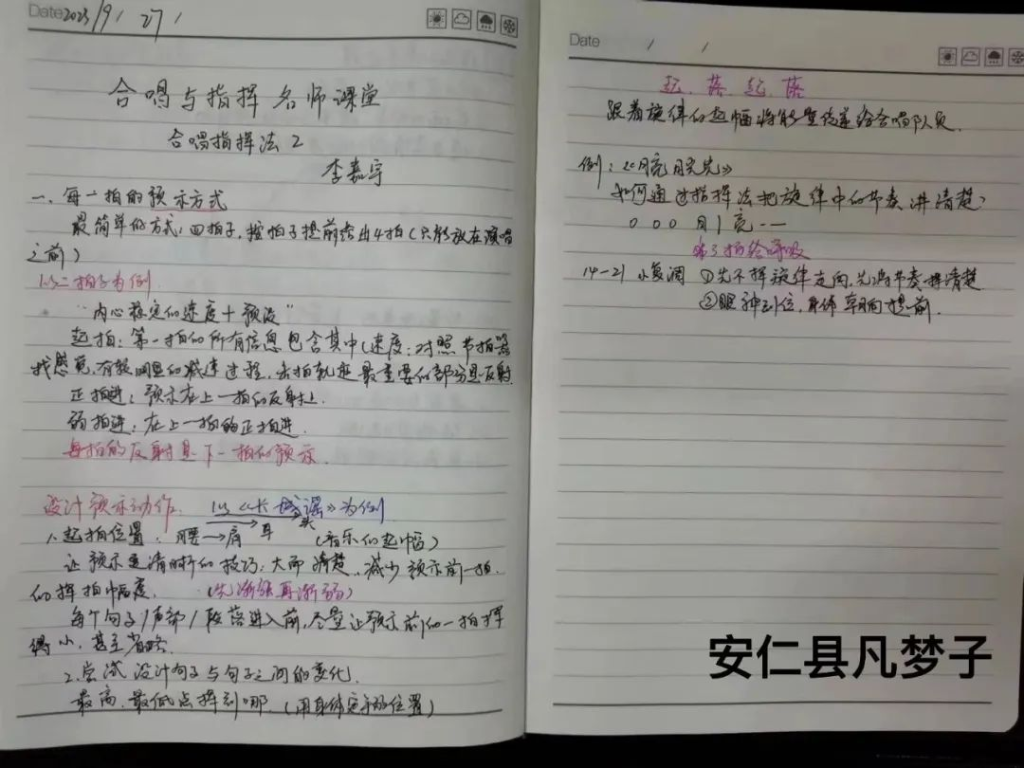 Date 2023/9/27/
合唱与指挥名师课堂
合唱指挥法2
李嘉宇
一、每一拍的预示方式
最简单的方式:四拍子,按拍子提前给出4拍(只能放在演唱
之前)
1.以二拍子为例
"内心稳定的速度+预设"
起拍:第一拍的所有信息包含其中(速度:对照节拍器
找感觉,有较明显的减速过程,击拍就起 最重要的部分是反射
正拍进:预示在上一拍的反射上.
弱拍进:在上一拍的正拍进.
每拍的反射是下一拍的预示.
设计预示动作. 以《长城谣》为例
1.起拍位置. 腰→肩 耳 头 (音乐的起幅)
让预示更清晰的技巧:大而清楚,减少预示前一拍
的挥拍幅度. (先渐强再渐弱)
每个句子/声部/段落进入前,尽量让预示前的一拍挥
得小,甚至省略.
2.尝试设计句子与句子之间的变化.
最高、最低点挥到哪.(用身体定手的位置)
Date / /
起、落、起、落
跟着旋律的起幅将能量传递给合唱队员.
例:《月亮月亮》
如何通过指挥法把旋律中的节奏讲清楚?
0 0 0 月|亮 — —
第3拍给呼吸
14-21 小复调 ①先不挥旋律走向,先将节奏挥清楚
②眼神到位,身体朝向提前.
安仁县凡梦子